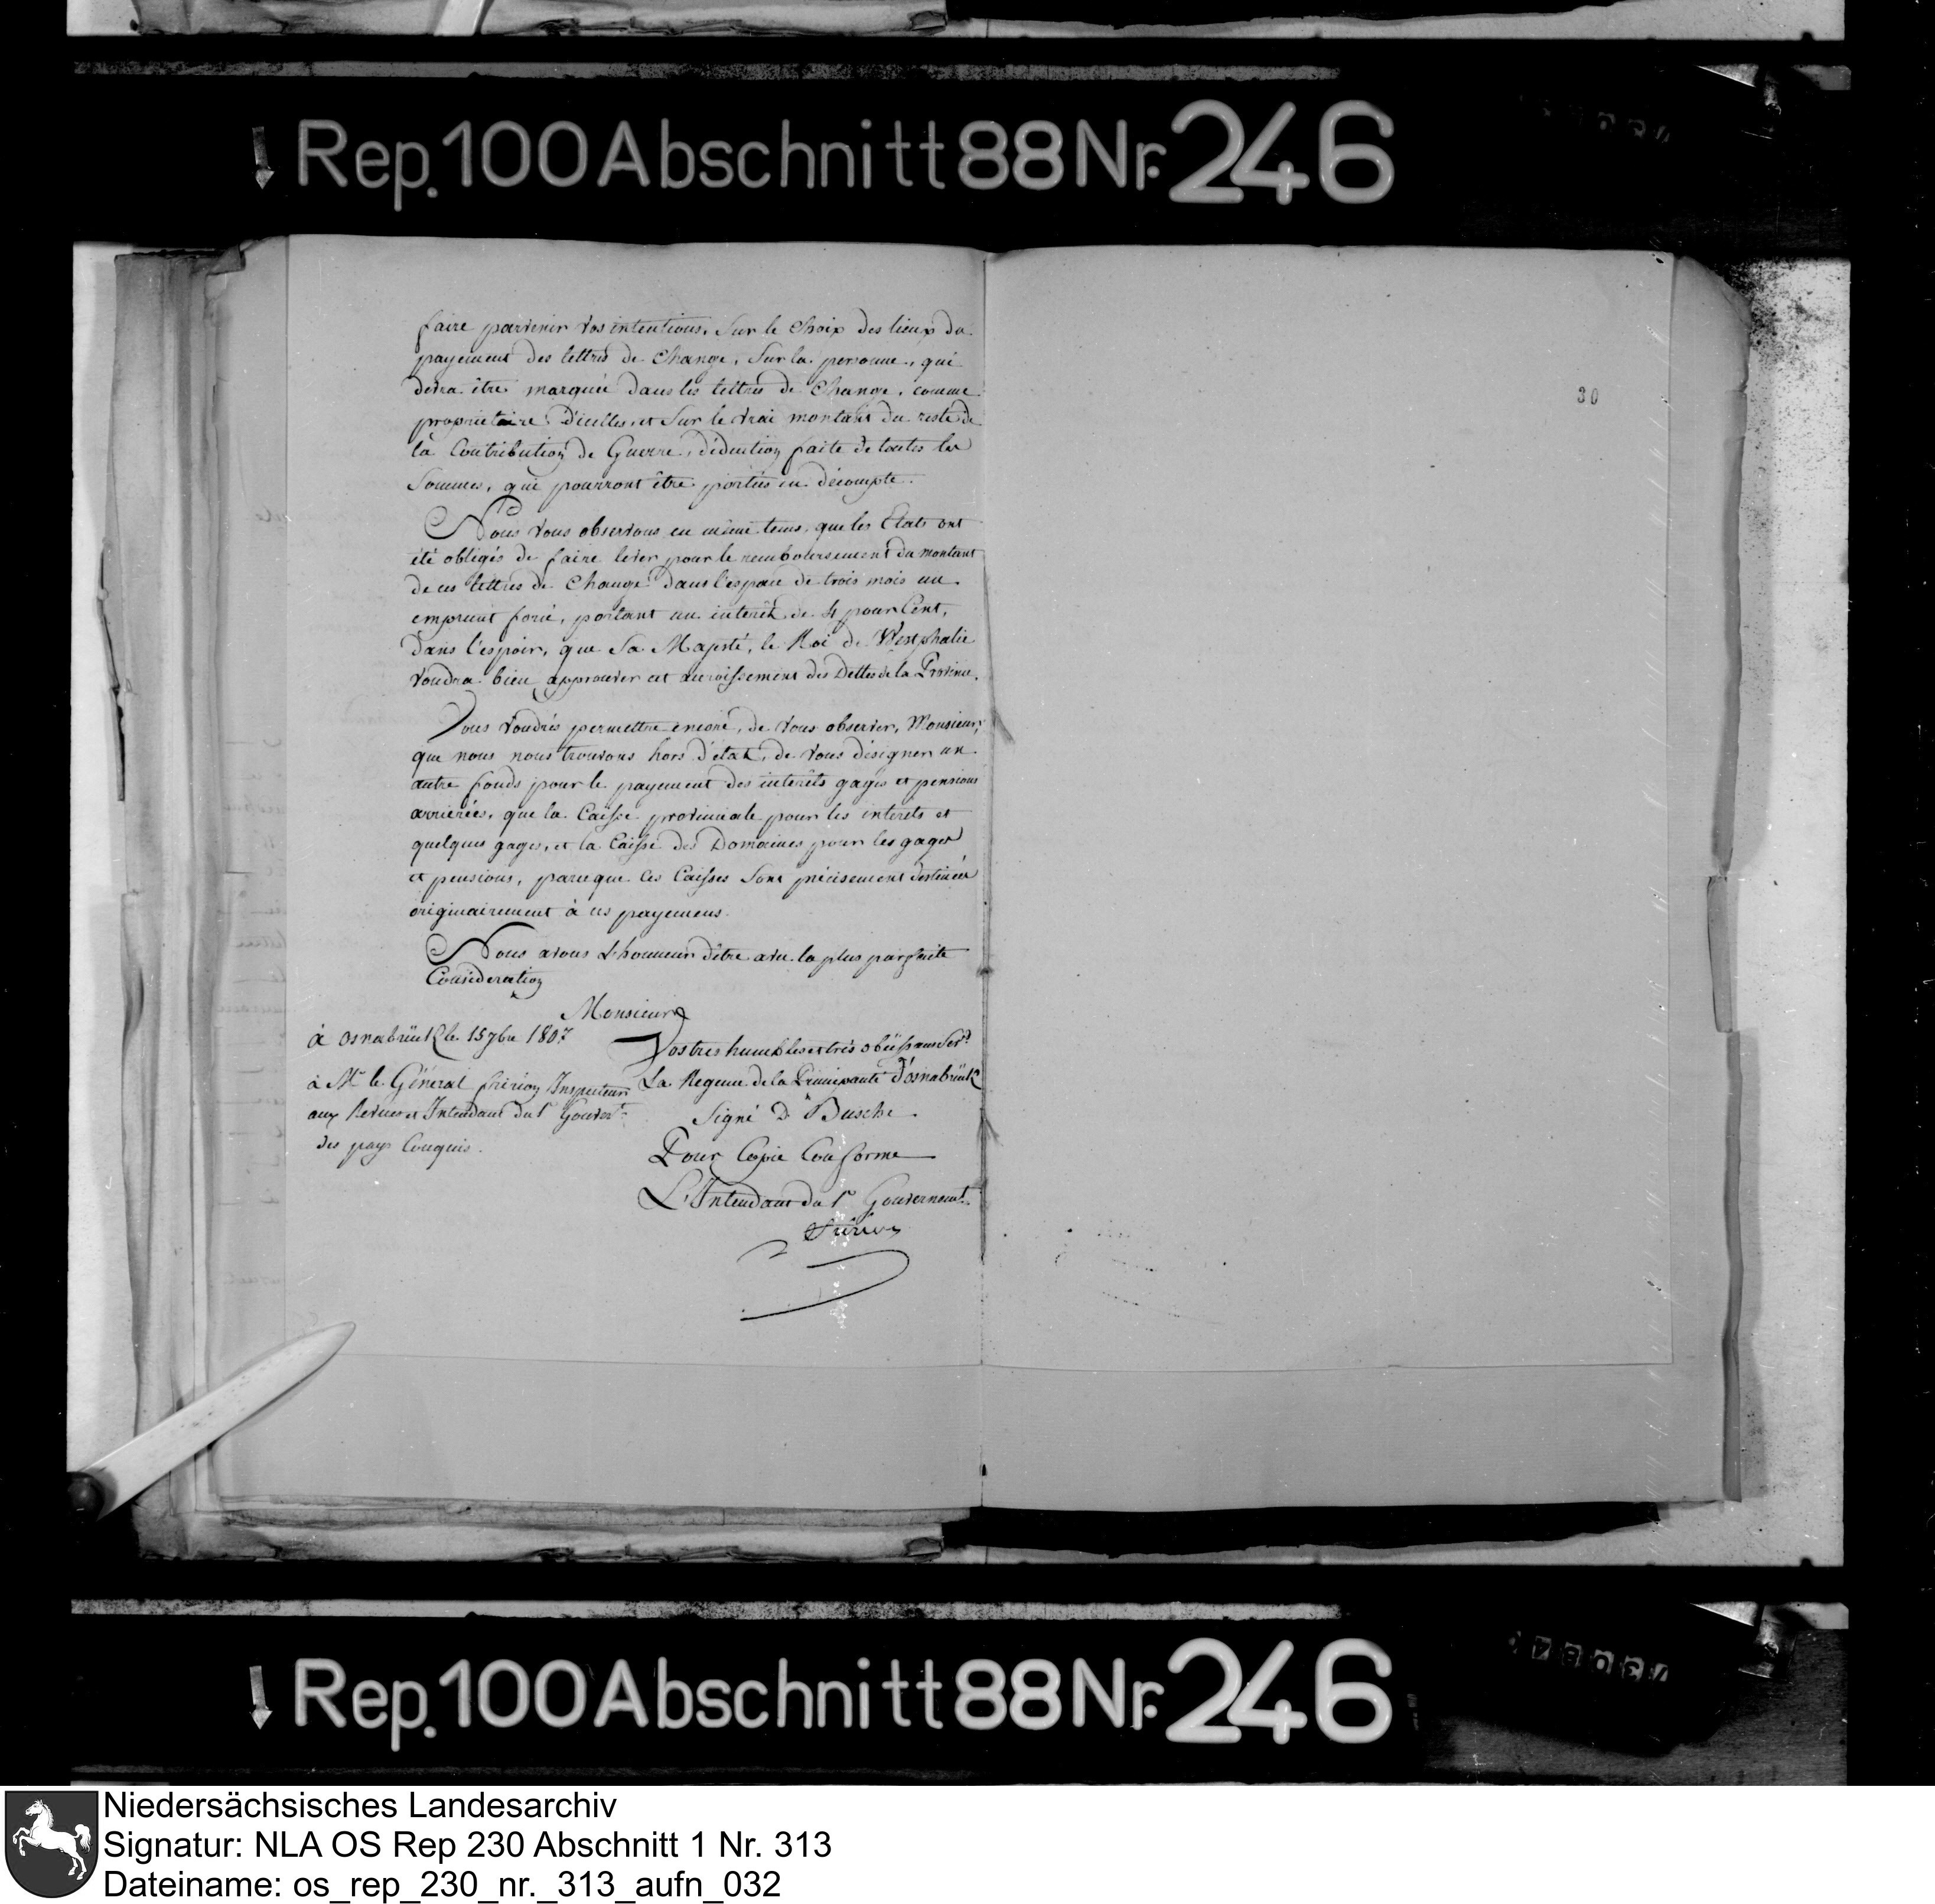 Rep. 100 Abschnitt 88 Nr. 246
30
faire parvenir vos intentions, Sur le Choix des lieux du
payement des lettres de Change, Sur la personne, qui
devra être marquée dans les lettres de Change, comme
proprietaire d'icelles, et Sur le vrai montant du reste de
la Contribution de Guerre, déduction faite de toutes les
Sommes, qui pourront être portées en décompte.
Nous vous observons en même tems, que les Etats ont
été obligés de faire lever pour le remboursement du montant
de ces lettres de Change dans l'espace de trois mois un
emprunt forcé, portant un interêt de 4 pour Cent,
Dans l'espoir, que Sa Majesté, le Roi de Westphalie
voudra bien approuver cet accroissement des Dettes de la Province.
Vous voudrés permettre encore, de vous observer, Monsieur,
que nous nous trouvons hors d'état, de vous désigner un
autre fonds pour le payement des interêts gages et pensions
arrierées, que la Caisse provinciale pour les interêts et
quelques gages, et la Caisse des Domaines pour les gages
et pensions, parceque ces Caisses Sont précisement destinées
originairement à ces payemens.
Nous avons L'honneur d'être avec la plus parfaite
Consideration
Monsieur
à Osnabrück le 15 7bre 1807
Vos tres humbles et très obéissans Servs
La Regence de la Principauté d'Osnabrück
à Mr. le Général fririon Inspecteur
aux Revues et Intendant du 1r Gouvert
des pays Conquis.
Signé D Busche
Pour Copie Conforme
L'Intendant du 1r Gouvernemt.
Fririon
Rep. 100 Abschnitt 88 Nr. 246
Niedersächsisches Landesarchiv
Signatur: NLA OS Rep 230 Abschnitt 1 Nr. 313
Dateiname: os_rep_230_nr._313_aufn_032